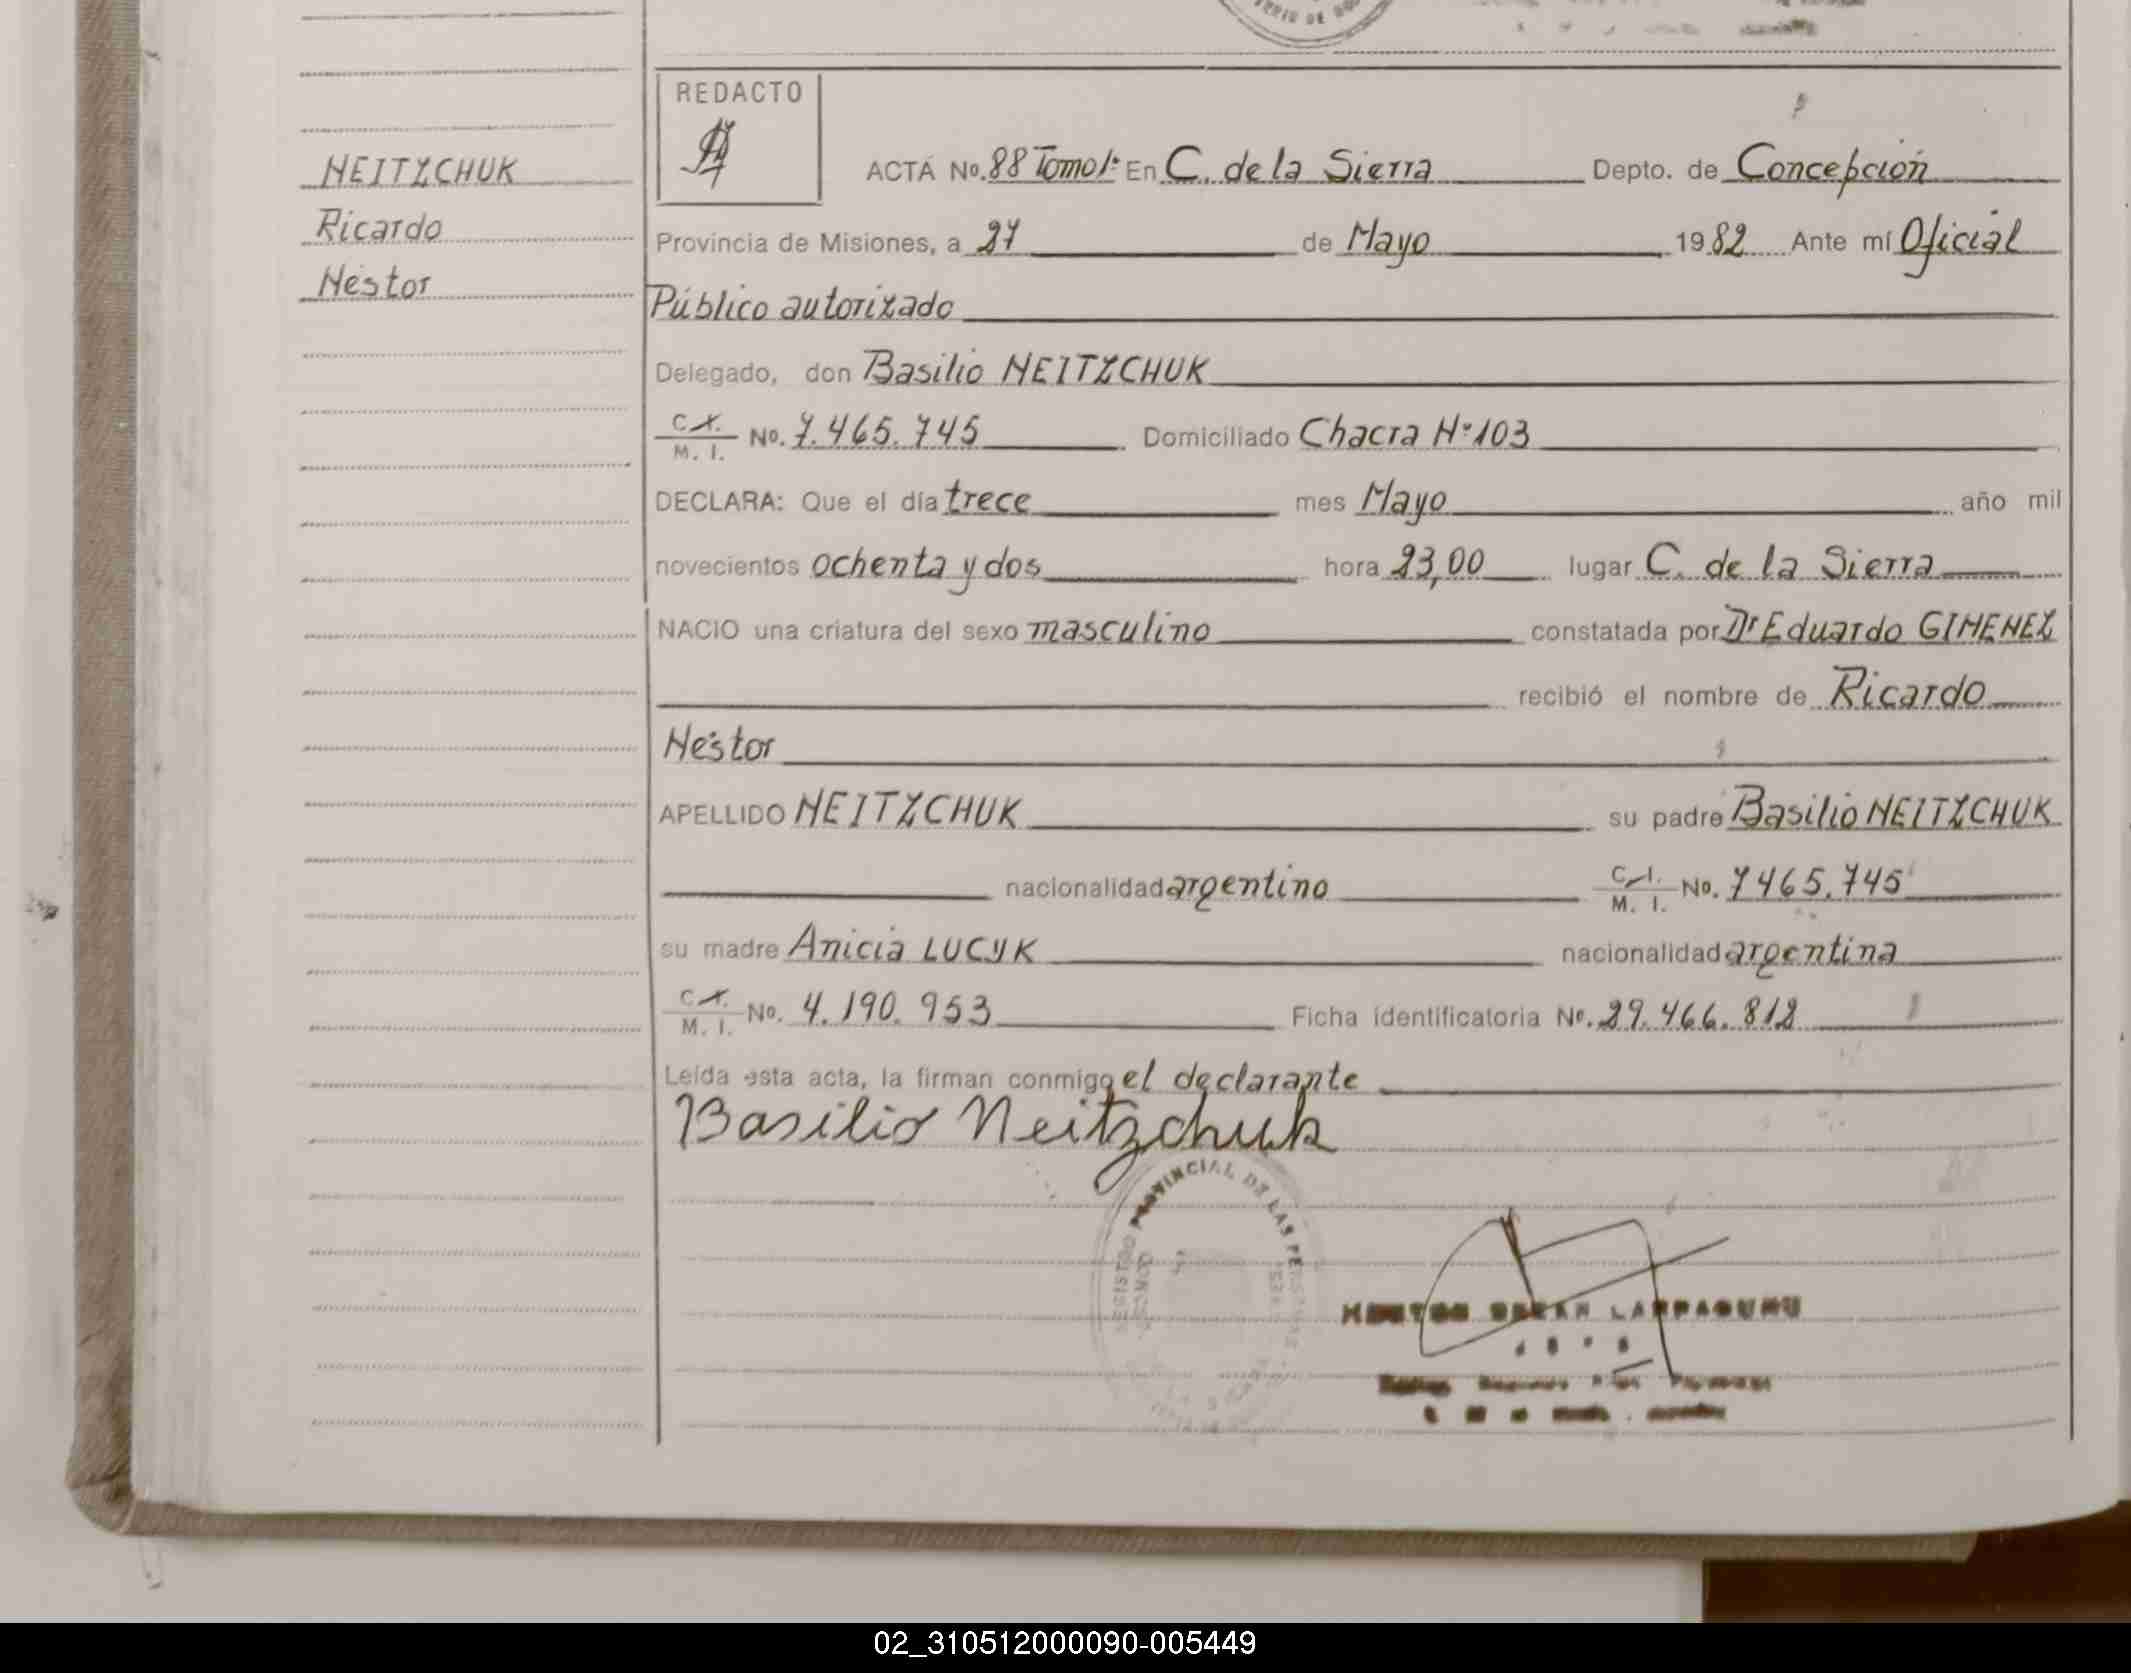 NEITZCHUK
Ricardo
Néstor
REDACTO
ACTA No. 88 Tomo 1º En C. de la Sierra Depto. de Concepción
Provincia de Misiones, a 27 de Mayo 1982 Ante mí Oficial
Público autorizado
Delegado, don Basilio NEITZCHUK
C.I. / M. I. No. 7.465.745 Domiciliado Chacra Nº 103
DECLARA: Que el día trece mes Mayo año mil
novecientos ochenta y dos hora 23,00 lugar C. de la Sierra
NACIO una criatura del sexo masculino constatada por Dr Eduardo GIMENEZ
recibió el nombre de Ricardo
Néstor
APELLIDO NEITZCHUK su padre Basilio NEITZCHUK
nacionalidad argentino C.I. / M. I. No. 7465.745
su madre Anicia LUCYK nacionalidad argentina
C.I. / M. I. No. 4.190.953 Ficha identificatoria No. 29.466.812
Leída esta acta, la firman conmigo el declarante
Basilio Neitzchuk
REGISTRO PROVINCIAL DE LAS PERSONAS
02_310512000090-005449